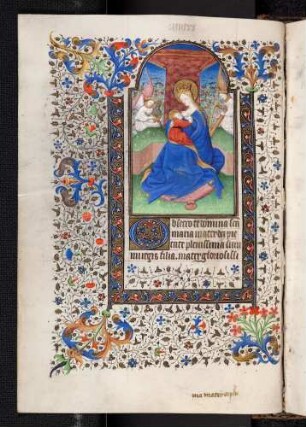 Obsecro te domina sca
maria mater dei pie
tate plenissima sum
mi regis filia. mater gloriosissi